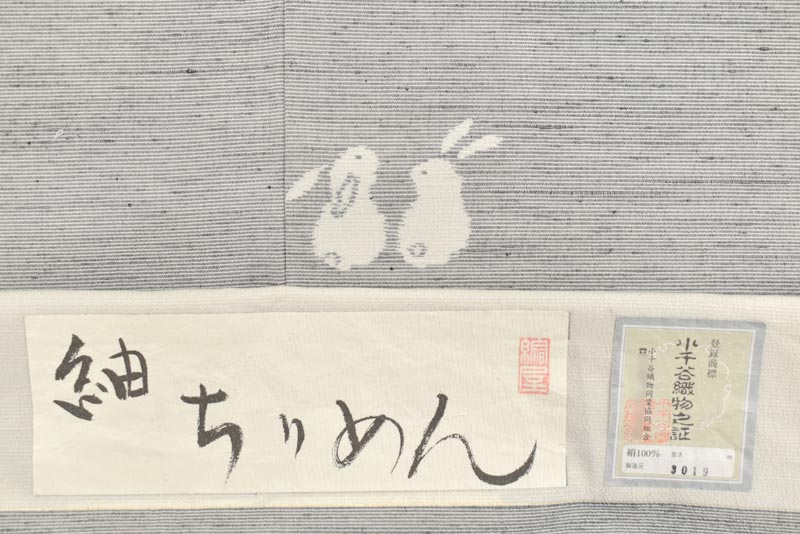 紬
ちりめん
登録商標
小千谷織物之証
小千谷織物同業協同組合
絹100% 長さ
製造元 3019